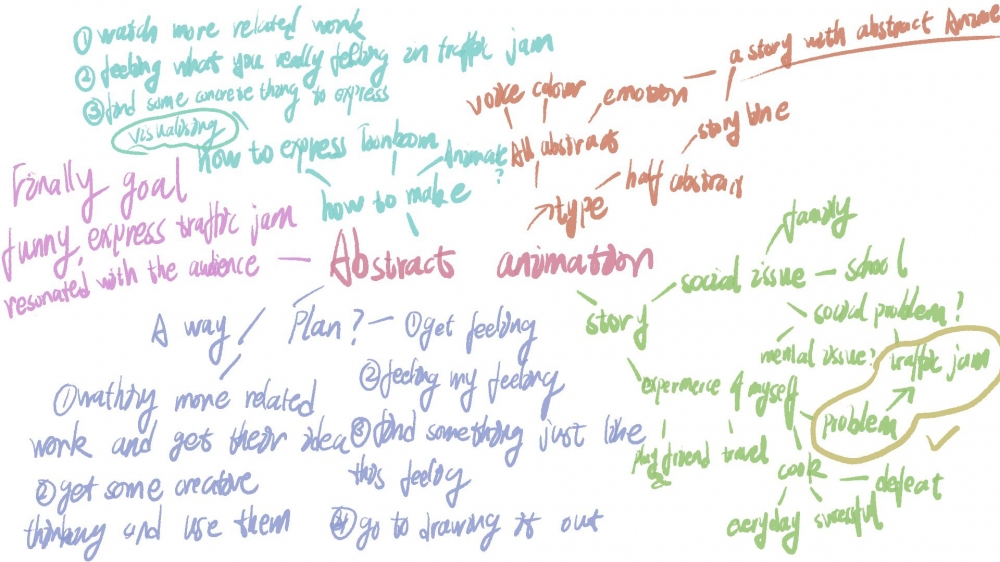 ① watch more related work
② feeling what you really feeling in traffic jam
③ find some concrete thing to express
visualising
how to express
Toonboom
Animate
?
how to make
a story with abstract Anime
voice colour
emotion
All abstract
story line
half abstract
type
Finally goal
funny, express traffic jam
resonated with the audience
Abstract animation
family
social issue
school
social problem?
story
mental issue?
traffic jam
experience of myself
problem
play friend
travel
cook
defeat
everyday
successful
A way / Plan?
① get feeling
② feeling my feeling
③ find something just like
this feeling
④ go to drawing it out
① wathing more related
work and get their idea
② get some creative
thinking and use them